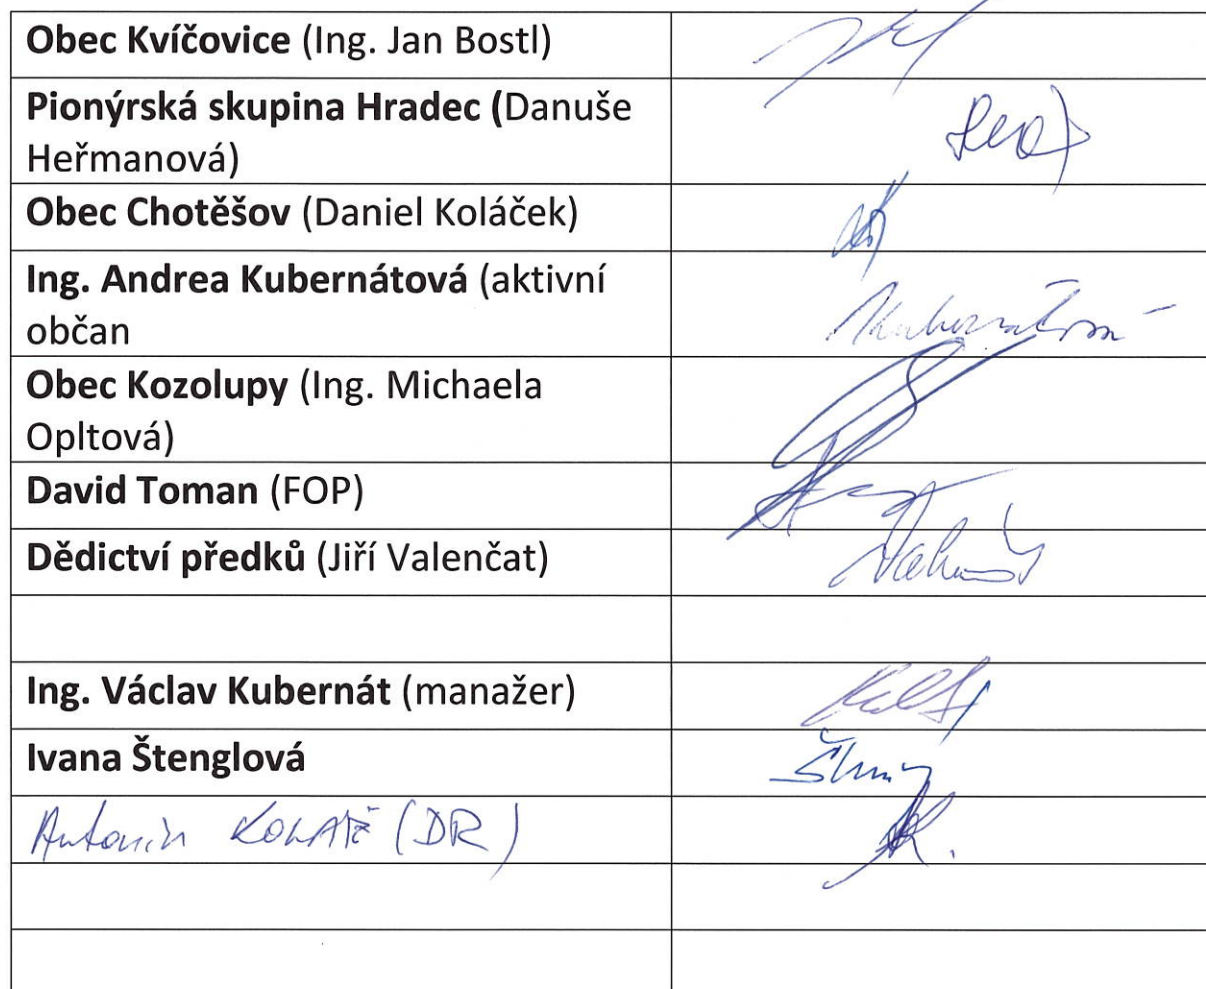 Obec Kvíčovice (Ing. Jan Bostl)
Pionýrská skupina Hradec (Danuše
Heřmanová)
Obec Chotěšov (Daniel Koláček)
Ing. Andrea Kubernátová (aktivní
občan
Kubernátová
Obec Kozolupy (Ing. Michaela
Opltová)
David Toman (FOP)
Dědictví předků (Jiří Valenčat)
Ing. Václav Kubernát (manažer)
Ivana Štenglová
Antonín (DR)